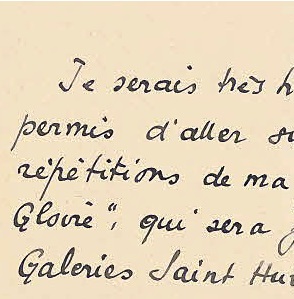 Je serais très h
permis d'aller su
répétitions de ma
Gloire", qui sera
Galeries Saint Hu